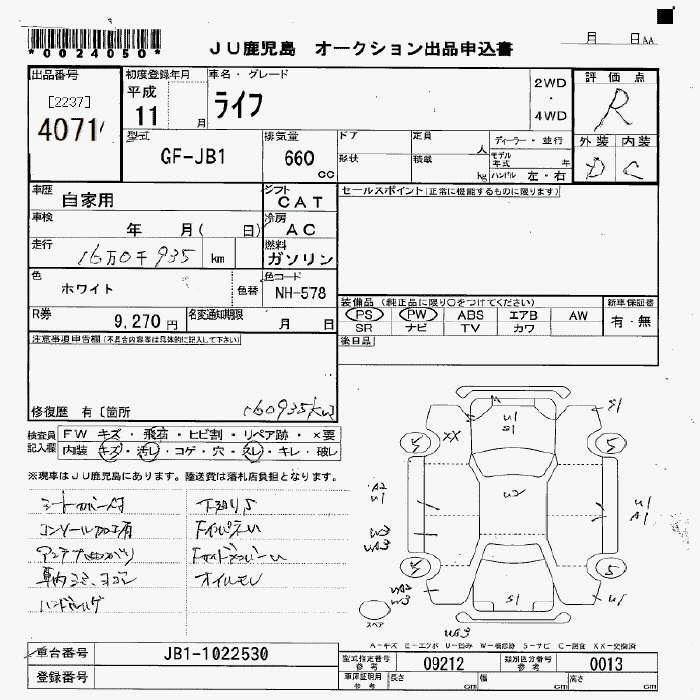 *0024050*
JU鹿児島 オークション出品申込書
月 日AA
出品番号
[2237]
4071
初度登録年月
平成
11 月
車名・グレード
ライフ
2WD
・
4WD
評価点
R
型式
GF-JB1
排気量
660
cc
ドア
形状
定員
人
積載
kg
ディーラー・並行
モデル年式 年
ハンドル 左・右
外装 内装
D C
車歴
自家用
シフト
CAT
セールスポイント(正常に機能するものに限ります)
車検
年 月( 日)
冷房
AC
走行
16万0千935 km
燃料
ガソリン
色
ホワイト
色替
色コード
NH-578
装備品 (純正品に限り○をつけてください)
PS PW ABS エアB AW
SR ナビ TV カワ
新車保証書
有・無
R券
9,270 円
名変通知期限
月 日
後日品
注意事項申告欄(不具合内容等は具体的に記入して下さい)
修復歴 有 [箇所
160935km]
検査員
記入欄
FW キズ・飛石・ヒビ割・リペア跡・×要
内装・キズ・汚レ・コゲ・穴・スレ・キレ・破レ
※現車はJU鹿児島にあります。陸送費は落札店負担となります。
シートカバー付
コンソール加工有
下廻りサ
オイルモレ
U1
S1
S1
XX
5
5
5
5
A2
U1
U2
U1
A1
S1
U1
スペア
A-キズ E-エクボ U-凹み W-補修跡 S-サビ C-腐食 XX-交換済
車台番号
JB1-1022530
型式指定番号
参考
09212
類別区分番号
参考
0013
登録番号
車庫証明用
参考
長さ
cm
幅
cm
高さ
cm